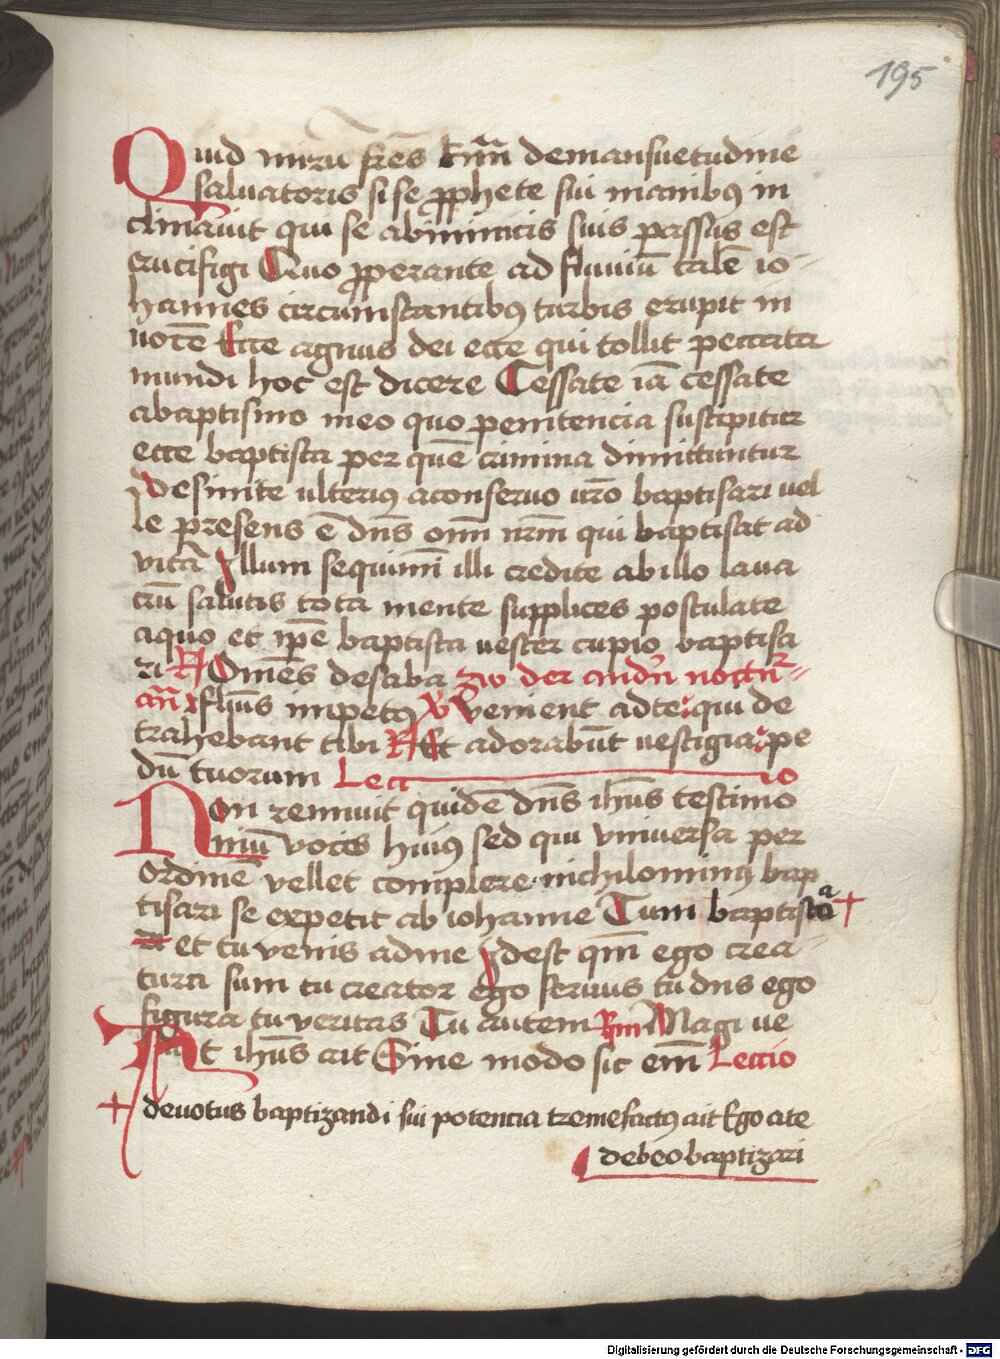 195
Quid mirū fr̄es k̄mi demansuetudine
saluatoris si se ꝓphete sui manibꝯ in
clinauit qui se abinimicis suis passus est
crucifigi Quo ꝓperante ad fluuiū talē io-
hannes circumstantibꝯ turbis erupit in
uocē Ecce agnus dei ecce qui tollit peccata
mundi hoc est dicere Cessate iā cessate
abaptismo meo quo penitencia suscipitur
ecce baptista per quē crimina dimittuntur
desinite ulterius aconseruo uro baptisari uel
le presens ē dn̄s om̄ nr̄m qui baptisat ad
vitā Illum sequimī illi credite ab illo laua
crū salutis tota mente supplices postulate
aquo et ip̄e baptista uester cupio baptisa
ri R Om̄es desaba zw der andn̄ noctur-
an̄ x flūs impetꝯ V Venient adte: qui de
trahebant tibi R Et adorabūt uestigia: pe
dū tuorum Leccio
Non rennuit quidē dn̄s ihūs testimo
niū vocis huiꝯ sed qui vniuersa per
ordinē vellet complere nichilominꝯ bap
tisari se expetit ab iohanne Tum baptista +
et tu venis adme Idest qm̄ ego crea-
tura sum tu creator ego seruus tu dn̄s ego
figura tu veritas Tu autem Rm̄ Magi ue
At ihūs ait Sine modo sic em̄ Leccio
+ deuotus baptizandi sui potencia tremefactꝯ ait Ego ate
debeo baptizari
Digitalisierung gefördert durch die Deutsche Forschungsgemeinschaft - DFG